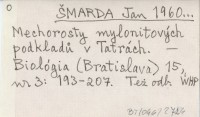 ŠMARDA Jan 1960...
Mechorosty mylonitových
podkladů v Tatrách. —
Biológia (Bratislava) 15,
nr 3: 193-207. Též odb. WHP